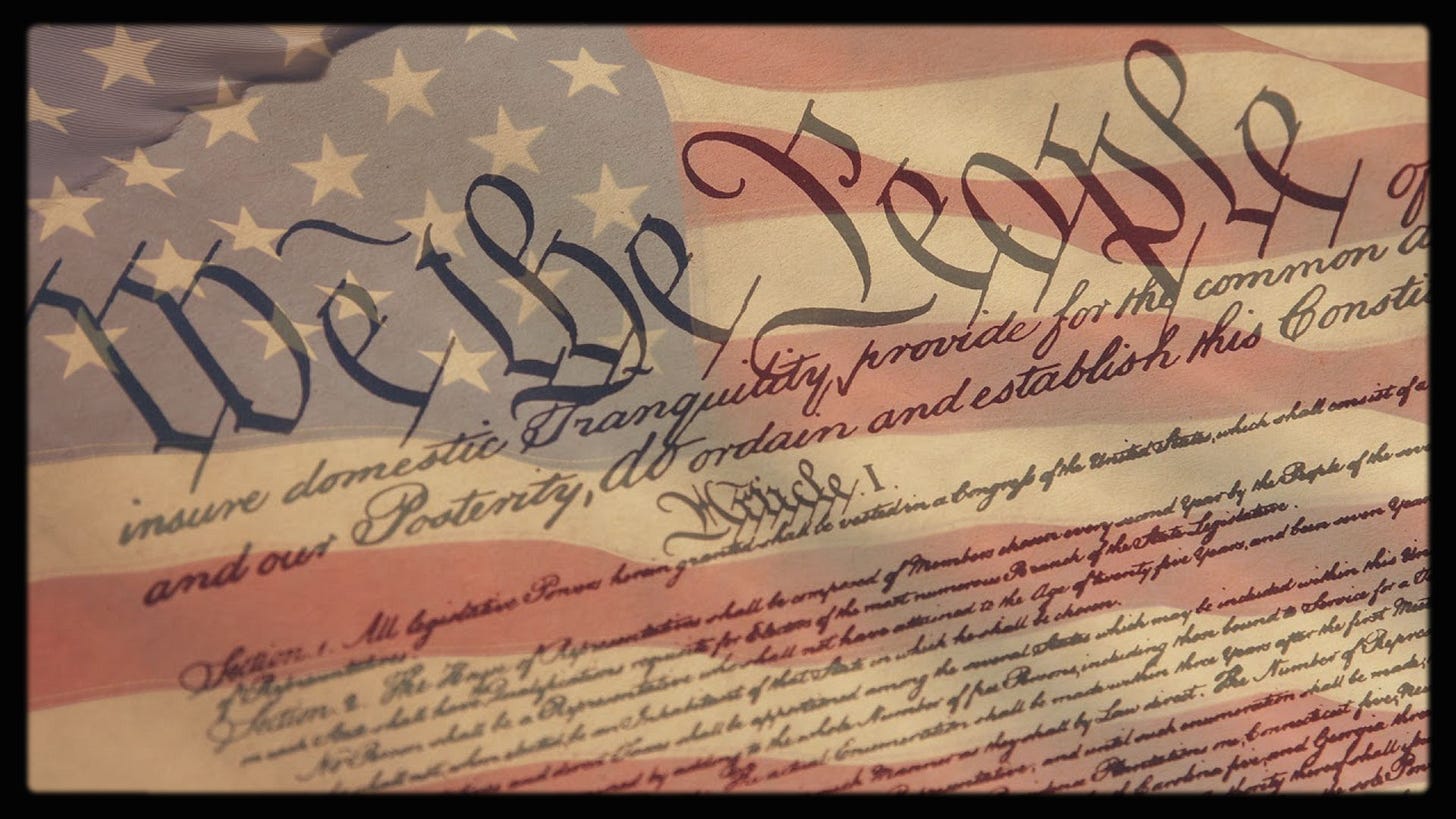 We the People of
insure domestic Tranquility, provide for the common
and our Posterity, do ordain and establish this Constit
Article. I.
Section. 1. All legislative Powers herein granted shall be vested in a Congress of the United States, which shall consist of a
of Representatives.
Section. 2. The House of Representatives shall be composed of Members chosen every second Year by the People of the seve
in each State shall have the Qualifications requisite for Electors of the most numerous Branch of the State Legislature.
No Person shall be a Representative who shall not have attained to the Age of twenty five Years, and been seven Years
shall not, when elected, be an Inhabitant of that State in which he shall be chosen.
and direct Taxes shall be apportioned among the several States which may be included within this Un
by adding to the whole Number of free Persons, including those bound to Service for a
The actual Enumeration shall be made within three Years after the first Meet
such Manner as they shall by Law direct. The Number of Repres
Representative; and until such enumeration shall be made,
Plantations one, Connecticut five, New
Carolina five, and Georgia three